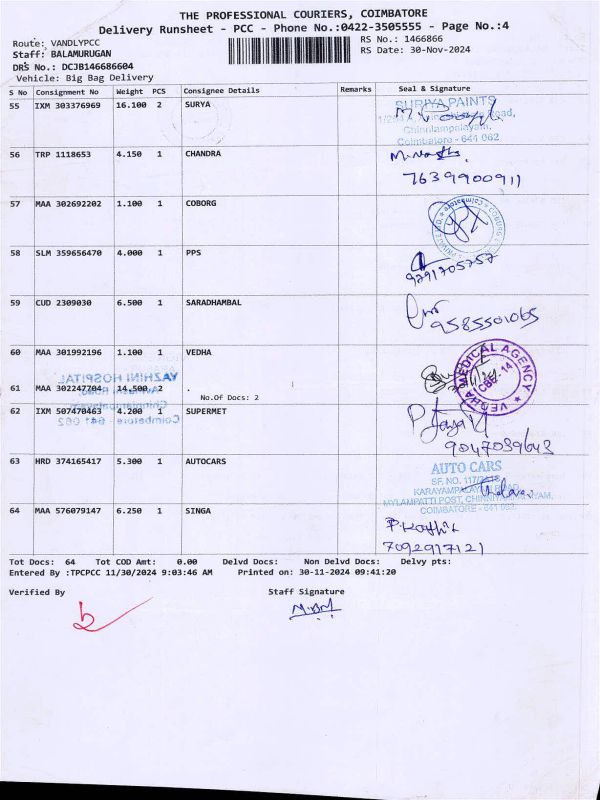 THE PROFESSIONAL COURIERS, COIMBATORE
Delivery Runsheet - PCC - Phone No.:0422-3505555 - Page No.:4
Route: VANDLYPCC
Staff: BALAMURUGAN
DRS No.: DCJB146686604
Vehicle: Big Bag Delivery
RS No.: 1466866
RS Date: 30-Nov-2024
S No Consignment No Weight PCS Consignee Details Remarks Seal & Signature
55 IXM 303376969 16.100 2 SURYA
SURIYA PAINTS
Road,
Chinniampalayam,
Coimbatore - 641 062
56 TRP 1118653 4.150 1 CHANDRA
7639900911
57 MAA 302692202 1.100 1 COBORG
58 SLM 359656470 4.000 1 PPS
9791705757
59 CUD 2309030 6.500 1 SARADHAMBAL
9585501065
60 MAA 301992196 1.100 1 VEDHA
VEDHA MEDICAL AGENCY
CBE - 14
YAZHINI HOSPITAL
61 MAA 302247704 14.500 2 .
No.Of Docs: 2
Coimbatore - 641 062
62 IXM 507470463 4.200 1 SUPERMET
9047039643
63 HRD 374165417 5.300 1 AUTOCARS
AUTO CARS
SF. NO. 117/
KARAYAMPALAYAM ROAD
MYLAMPATTI POST, CHINNIYAMPALAYAM,
COIMBATORE - 641 062
64 MAA 576079147 6.250 1 SINGA
7092917121
Tot Docs: 64 Tot COD Amt: 0.00 Delvd Docs: Non Delvd Docs: Delvy pts:
Entered By :TPCPCC 11/30/2024 9:03:46 AM Printed on: 30-11-2024 09:41:20
Verified By Staff Signature